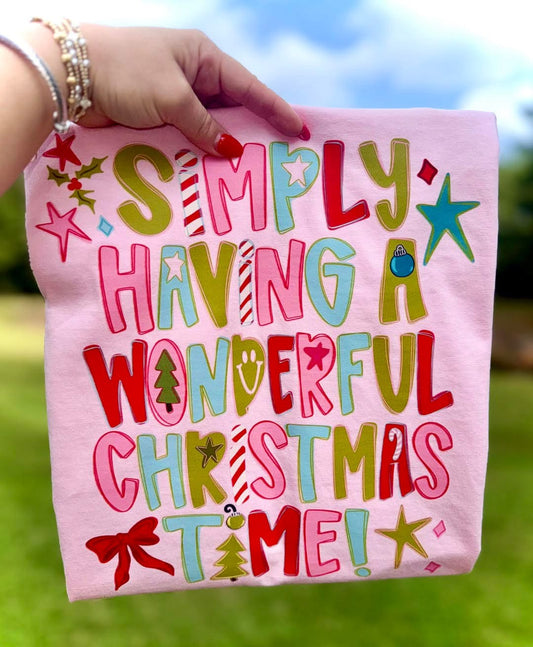 SiMPLY
HAViNG A
WONDERFUL
CHRiSTMAS
TiME!